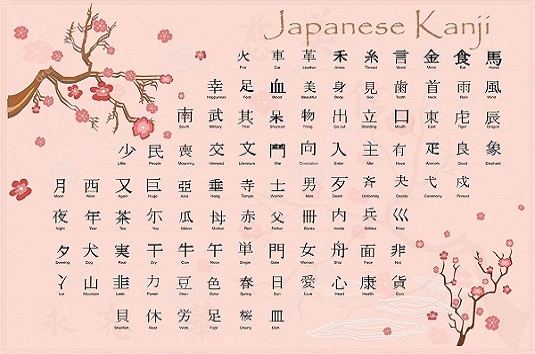 Japanese Kanji
火 車 革 禾 糸 言 金 食 馬
Fire Car Leather Thread Word Horse
幸 足 血 美 身 見 歯 首 雨 風
Happiness Foot Blood Beautiful Body See Teeth Neck Rain Wind
南 武 其 呆 物 出 立 口 東 虍 辰
South Military That Shocked Thing Go out Standing Mouth East Tiger Dragon
少 民 喪 交 文 鬥 向 入 有 豸 良 象
Little People Mourning Intersect Literature War Orientation Enter Have Animals Good Elephant
月 西 又 巨 亞 垂 寺 士 男 歹 斉 夬 戍
Moon West Again Huge Asia Hang Temple Warrior Man Death Uniformity Decide Ceremony Protect
夜 年 茶 尓 瓜 母 赤 父 冊 内 兵 巛
Night Year Tea You Melon Mother Red Father Books Inside Soldier River
夕 犬 実 干 牛 午 単 門 女 舟 面 非
Evening Dog Real Dry Cow Noon Single Gate Women Ship Face Not
冫 山 韭 力 豆 色 春 日 愛 心 康 貨
Ice Mountain Leek Power Bean Color Spring Sun Love Heart Health Goods
貝 休 労 足 桜 皿
Shellfish Rest Work Foot Cherry Dish